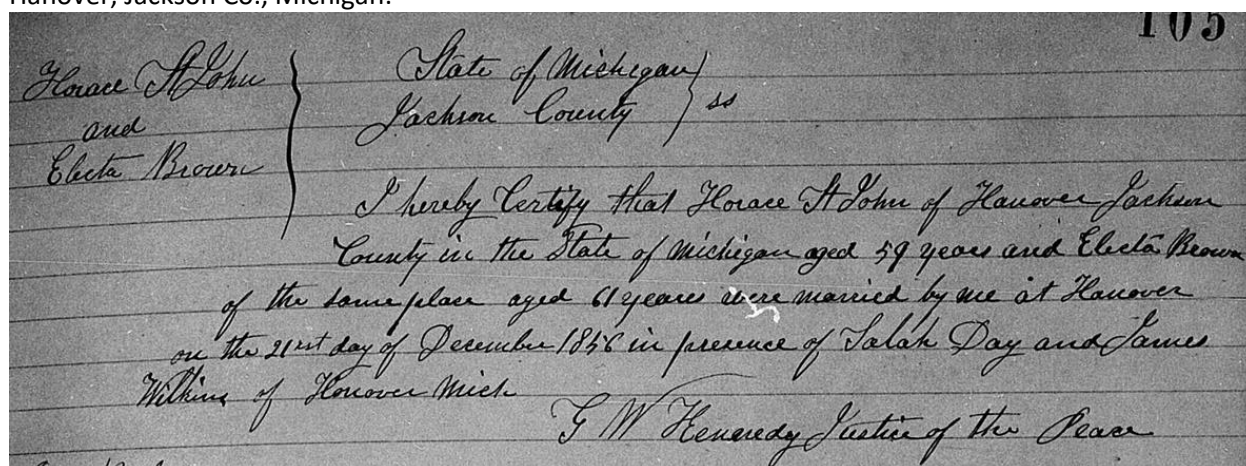 Hanover, Jackson Co., Michigan.
105
Horace St John
and
Electa Brown
State of Michigan
Jackson County ss
I hereby Certify that Horace St John of Hanover Jackson
County in the State of Michigan aged 59 years and Electa Brown
of the same place aged 61 years were married by me at Hanover
on the 21st day of December 1856 in presence of Salah Day and James
Wilkins of Honover Mich
G W Kennedy Justice of the Peace